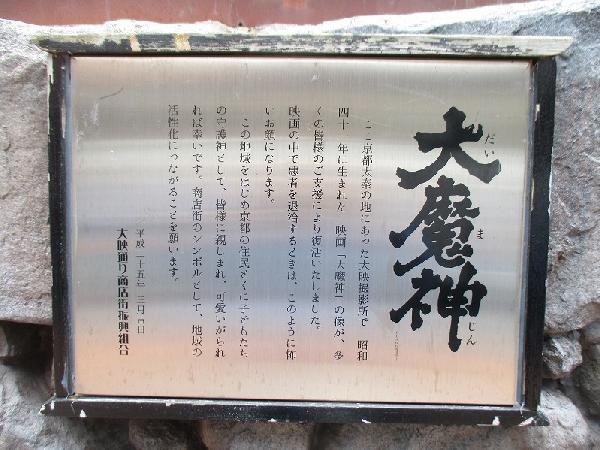 大魔神
だい
ま
じん
ここ京都太秦の地にあった大映撮影所で、昭和
四十一年に生まれた、映画「大魔神」の像が、多
くの皆様のご支援により復活いたしました。
映画の中で悪者を退治するときは、このように怖
いお顔になります。
この地域をはじめ京都の住民とくに子どもたち
の守護神として、皆様に親しまれ、可愛いがられ
れば幸いです。商店街のシンボルとして、地域の
活性化につながることを願います。
平成二十五年 三月 日
大映通り商店街振興組合